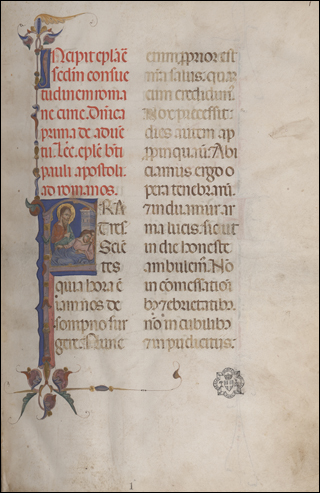 Incipit eplāē
sedm consue
tudinem roma
ne curie. Dnica
prima de adue
tu. Lec. eple bti
pauli apostoli
ad romanos.
FRA
tres.
Scie
tes
quia hora ē
iam nos de
sompno sur
gere. Nunc
enim pprior est
nra salus: quaz
cum credidim'.
Nox pcessit:
dies autem ap
ppinquauit. Abi
ciamus ergo o
pera tenebraru.
⁊ induamur ar
ma lucis. sicut
in die honeste
ambulem'. Nō
in comessatioi
bꝫ ⁊ ebrietatibꝫ
nō in cubilibꝫ
⁊ inpudicitiis:
1